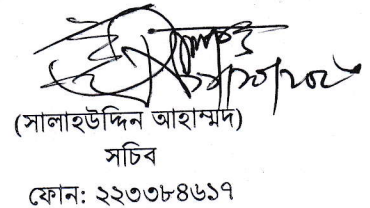 (সালাহউদ্দিন আহাম্মদ)
সচিব
ফোন: ২২৩৩৮৪৬১৭